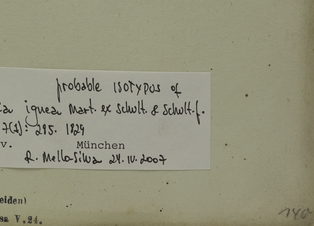 probable ISOTYPUS of
ia ignea Mart. ex Schult. & Schult.f.
7(2): 295. 1829
v. München
R. Mello-Silva 24.IV.2007
eiden)
sa V.24.
140